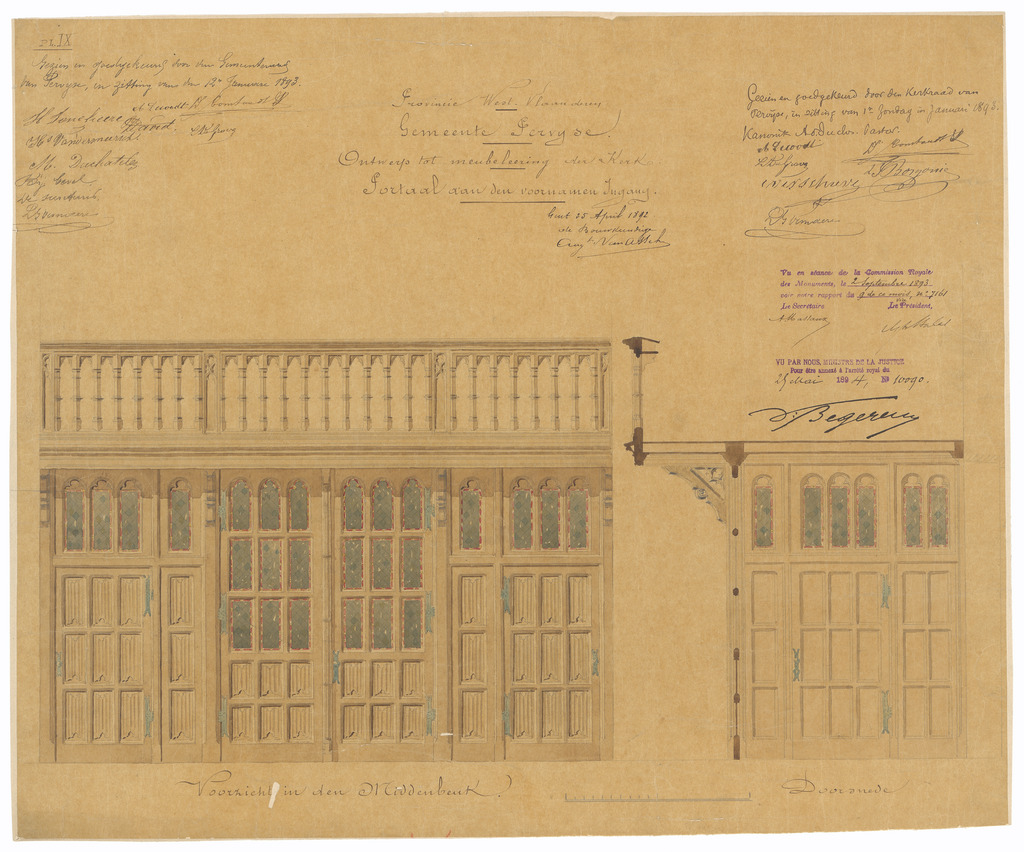 PL. IX
Gezien en goedgekeurd door den Gemeenteraad
van Pervyse, in zitting van den 12n Januari 1893.
A Dewodt Ds Constandt
H Dewodt.
Ls De Grave
M. Duchatelez
D. Vermeere
Provincie West-Vlaanderen
Gemeente Pervyse.
Ontwerp tot meubeleering der Kerk
Portaal aan den voornamen Ingang.
Gent 25 April 1892
de Bouwkundige
Augte Van Assche
Gezien en goedgekeurd door den Kerkraad van
Pervyse, in zitting van 1n Zondag in Januari 1893.
Kanonik Ad. Duclos. Pastor.
A Dewodt Ds Constandt
D. Vermeere
Vu en séance de la Commission Royale
des Monuments, le 2 Septembre 1893
voir notre rapport du 9 de ce mois, no 7161
Le Secrétaire Le Président,
A Massaux
VU PAR NOUS, MINISTRE DE LA JUSTICE
Pour être annexé à l'arrêté royal du
25 Mai 1894, No 10090.
Begerem
Voorzicht in den Middenbeuk.
Doorsnede